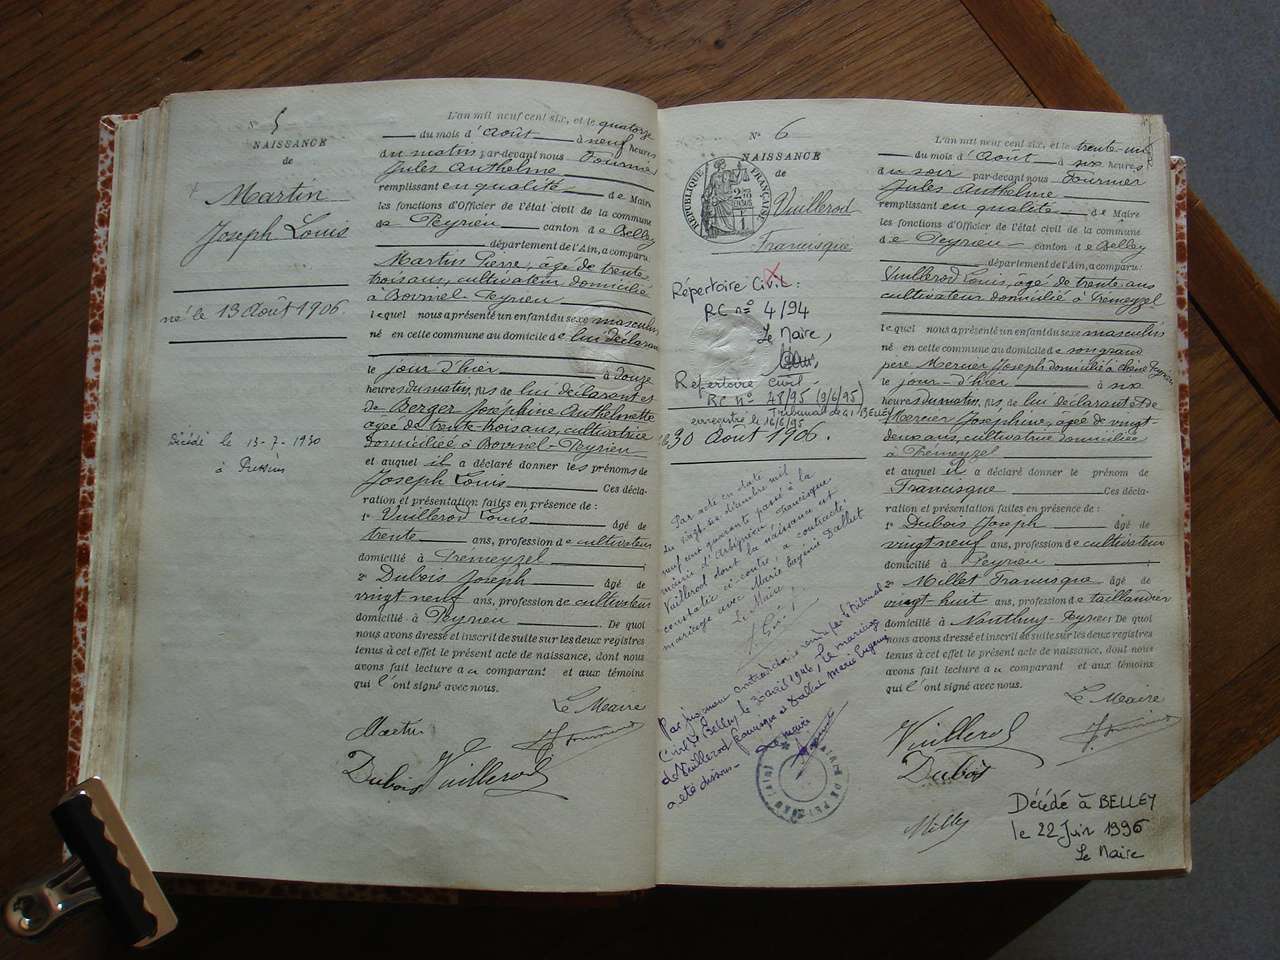 N° 5
NAISSANCE
de
Martin
Joseph Louis
né le 13 Août 1906
Décédé le 13-7-1930
à
L'an mil neuf cent six, et le quatorze
du mois d'Août à neuf heures
du matin par-devant nous Fournier
Jules Anthelme
remplissant en qualité de Maire
les fonctions d'Officier de l'état civil de la commune
de Peyrieu canton de Belley
département de l'Ain, a comparu:
Martin Pierre, âgé de trente
trois ans, cultivateur domicilié
à Bovinel-Peyrieu
lequel nous a présenté un enfant du sexe masculin
né en cette commune au domicile de lui déclarant
le jour d'hier à douze
heures du matin, fils de lui déclarant et
de Berger Joséphine Anthelmette
agée de trente-trois ans, cultivatrice
domiciliée à Bovinel-Peyrieu
et auquel il a déclaré donner les prénoms de
Joseph Louis Ces décla-
ration et présentation faites en présence de :
1° Vuillerod Louis âgé de
trente ans, profession de cultivateur
domicilié à Fremeyzel
2° Dubois Joseph âgé de
vingt neuf ans, profession de cultivateur
domicilié à Peyrieu De quoi
nous avons dressé et inscrit de suite sur les deux registres
tenus à cet effet le présent acte de naissance, dont nous
avons fait lecture au comparant et aux témoins
qui l'ont signé avec nous.
Le Maire
Martin
Dubois Vuillerod
N° 6
NAISSANCE
de
RÉPUBLIQUE FRANÇAISE
Vuillerod
Francisque
Répertoire Civil:
RC n° 4/94
Le Maire,
Répertoire Civil -
RC N° 48/95 (9/6/95)
Tribunal de G.I BELLEY
enregistré le 16/6/95
30 Août 1906.
Par acte en date
du vingt six décembre mil
neuf cent quarante passé à la
mairie d'Arbignieu Francisque
Vuillerod dont la naissance est
constatée ci-contre a contracté
mariage avec Marie Eugénie Dallet
Le Maire
Par jugement contradictoire rendu par le tribunal
Civil de Belley le 30 avril 1946, le mariage
de Vuillerod Francisque et Dallet Marie Eugénie
a été dissous -
Le maire
L'an mil neuf cent six, et le trente-un
du mois d'Août à six heures
du soir par-devant nous Fournier
Jules Anthelme
remplissant en qualité de Maire
les fonctions d'Officier de l'état civil de la commune
de Peyrieu canton de Belley
département de l'Ain, a comparu:
Vuillerod Louis, âgé de trente ans
cultivateur domicilié à Fremeyzel
lequel nous a présenté un enfant du sexe masculin
né en cette commune au domicile de son grand
père Mercier Joseph domicilié à
le jour-d'hier à six
heures du matin, fils de lui déclarant et de
Mercier Joséphine, agée de vingt
deux ans, cultivatrice domiciliée
à Fremeyzel
et auquel il a déclaré donner le prénom de
Francisque Ces décla-
ration et présentation faites en présence de :
1° Dubois Joseph âgé de
vingt neuf ans, profession de cultivateur
domicilié à Peyrieu
2° Millet Francisque âgé de
vingt-huit ans, profession de taillandier
domicilié à Nanthuy-Peyrieu De quoi
nous avons dressé et inscrit de suite sur les deux registres
tenus à cet effet le présent acte de naissance, dont nous
avons fait lecture au comparant et aux témoins
qui l'ont signé avec nous.
Le Maire
Vuillerod
Dubois
Millet
Décédé à BELLEY
le 22 Juin 1996
Le Maire